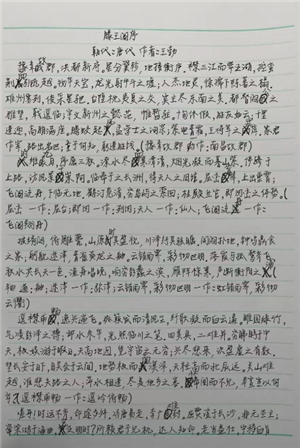 滕王阁序
朝代:唐代 作者:王勃
豫章故郡,洪都新府。星分翼轸,地接衡庐。襟三江而带五湖,控蛮
荆
物华天宝,龙光射牛斗之墟;人杰地灵,徐孺下陈蕃之榻。
雄州雾列,俊采星驰。台隍枕夷夏之交,宾主尽东南之美。都督阎公之
雅望,棨戟遥临;宇文新州之懿范,襜帷暂驻。十旬休假,胜友如云;千里
逢迎,高朋满座。腾蛟起凤,孟学士之词宗;紫电青霜,王将军之武库。家君
作宰,路出名区;童子何知,躬逢胜饯。(豫章故郡 一作:南昌故郡)
时维九月,序属三秋。潦水尽而寒潭清,烟光凝而暮山紫。俨骖于
上路,访风景于崇阿;临帝子之长洲,得天人之旧馆。层峦耸翠,上出重霄;
飞阁流丹,下临无地。鹤汀凫渚,穷岛屿之萦回;桂殿兰宫,即冈峦之体势。(
层峦 一作:层台;即冈 一作:列冈;天人 一作:仙人;飞阁流丹 一作:
飞阁翔丹)
披绣闼,俯雕甍,山原旷其盈视,川泽纡其骇瞩。闾阎扑地,钟鸣鼎食
之家;舸舰迷津,青雀黄龙之舳。云销雨霁,彩彻区明。落霞与孤鹜齐飞,
秋水共长天一色。渔舟唱晚,响穷彭蠡之滨;雁阵惊寒,声断衡阳之浦。(
轴 通:舳;迷津 一作:弥津;云销雨霁,彩彻区明 一作:虹销雨霁,彩彻
云衢)
遥襟甫畅,逸兴遄飞。爽籁发而清风生,纤歌凝而白云遏。睢园绿竹,
气凌彭泽之樽;邺水朱华,光照临川之笔。四美具,二难并。穷睇眄于中
天,极娱游于暇日。天高地迥,觉宇宙之无穷;兴尽悲来,识盈虚之有数。
望长安于日下,目吴会于云间。地势极而南溟深,天柱高而北辰远。关山难
越,谁悲失路之人;萍水相逢,尽是他乡之客。怀帝阍而不见,奉宣室以何
年?(遥襟甫畅 一作:遥吟俯畅)
嗟乎!时运不齐,命途多舛。冯唐易老,李广难封。屈贾谊于长沙,非无圣主;
窜梁鸿于海曲,岂乏明时?所赖君子见机,达人知命。老当益壮,宁移白首